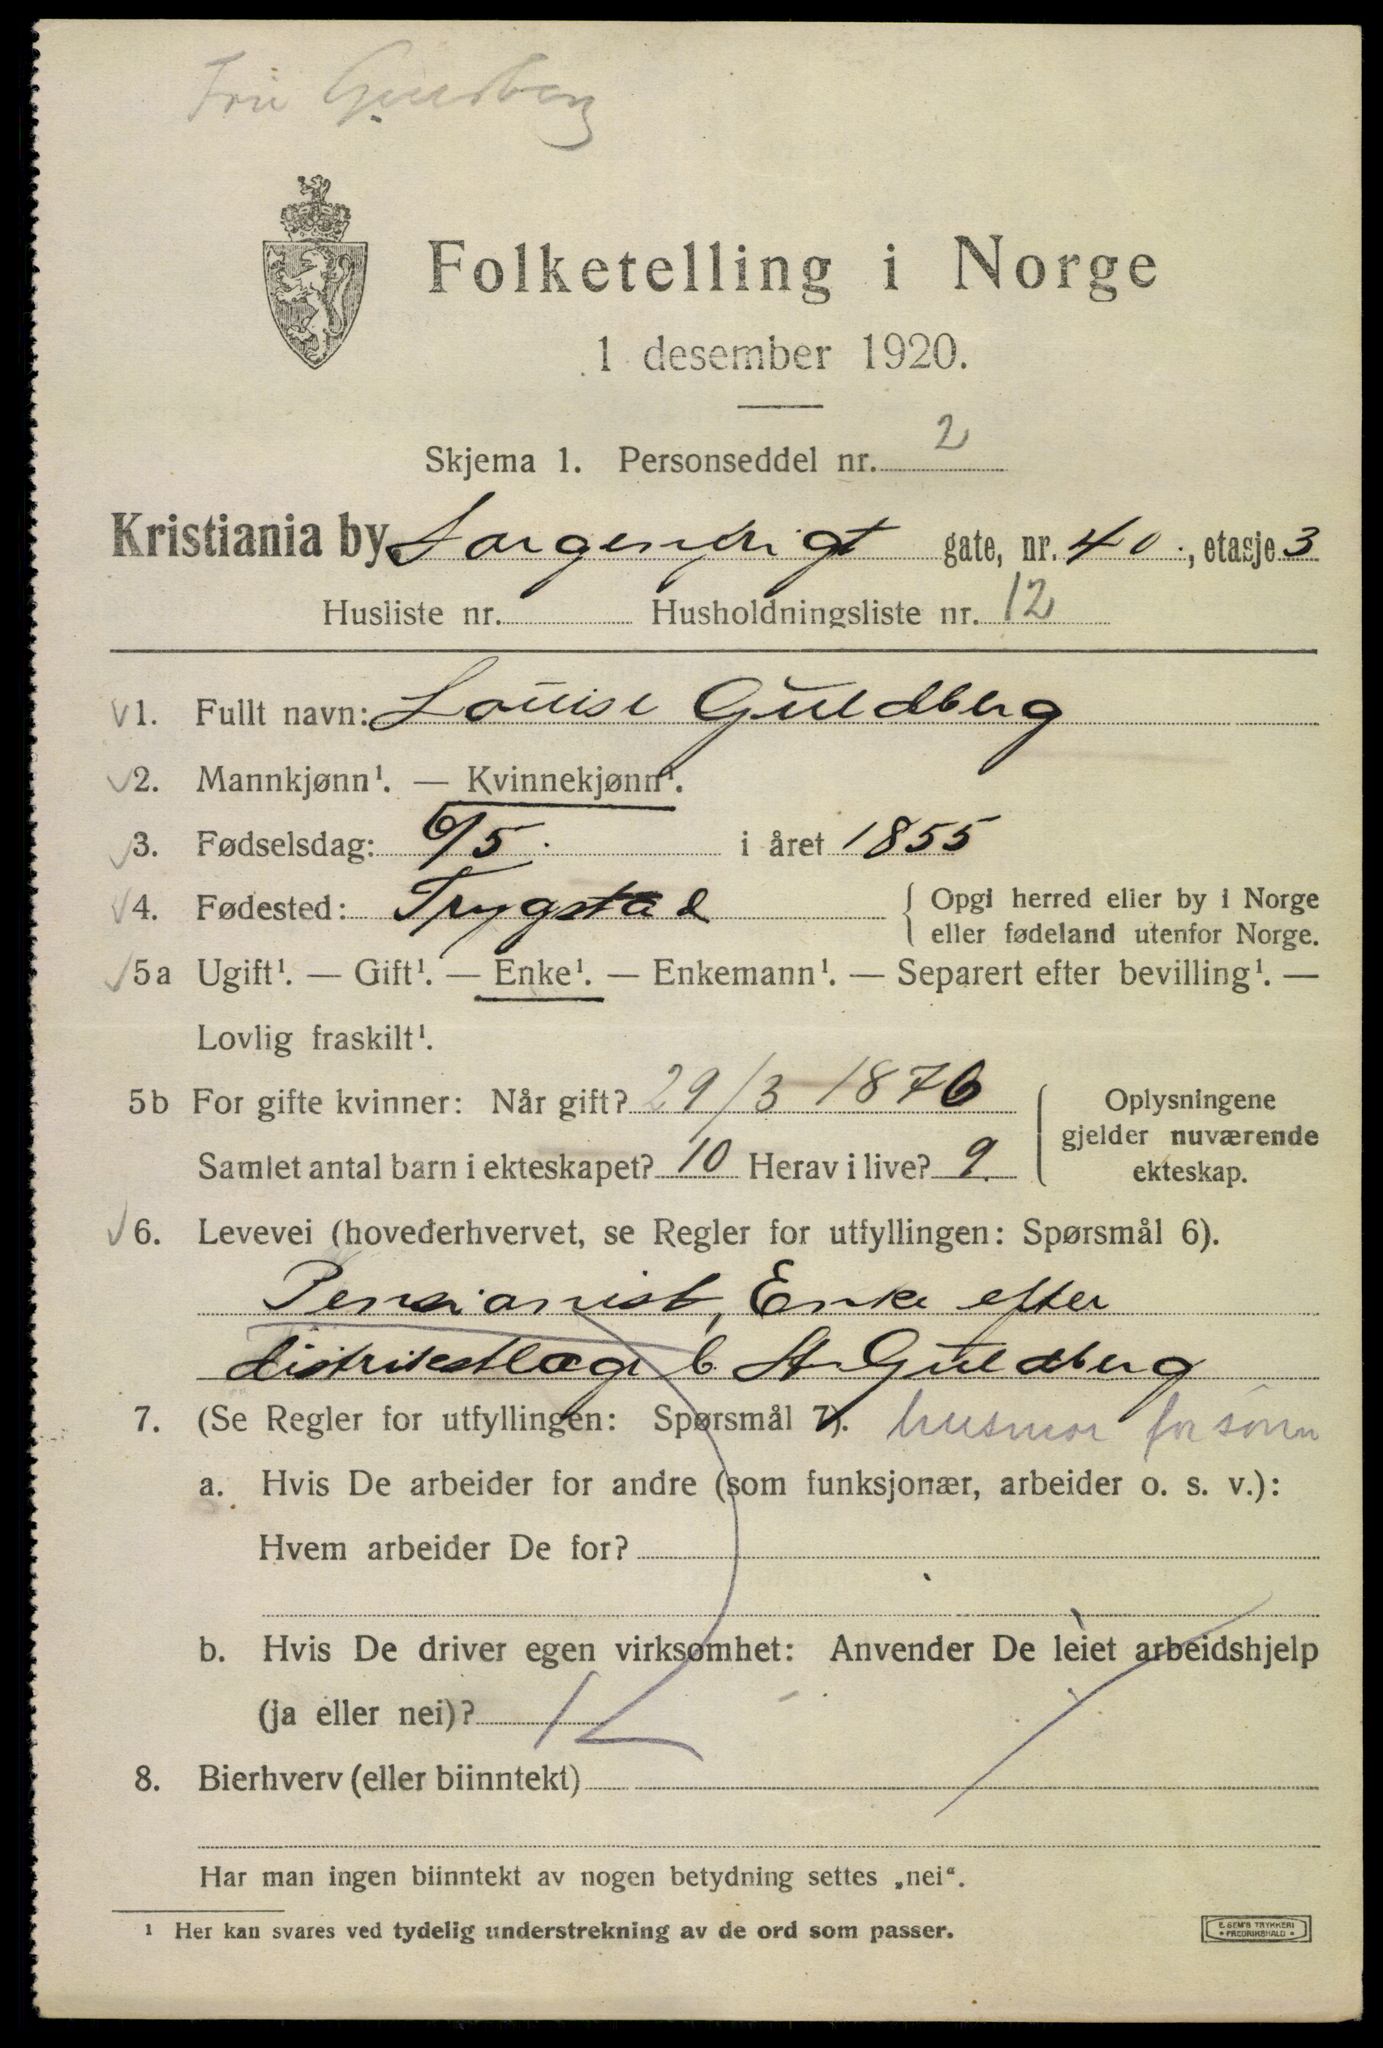 Fru Guldberg
Folketelling i Norge
1 desember 1920.
Skjema 1. Personseddel nr. 2
Kristiania by Sorgenfrigt gate, nr. 40., etasje 3
Husliste nr. Husholdningsliste nr. 12
1. Fullt navn: Louise Guldberg
2. Mannkjønn¹. — Kvinnekjønn¹.
3. Fødselsdag: 6/5. i året 1855
4. Fødested: Trygstad { Opgi herred eller by i Norge
eller fødeland utenfor Norge.
5a Ugift¹. — Gift¹. — Enke¹. — Enkemann¹. — Separert efter bevilling¹. —
Lovlig fraskilt¹.
5b For gifte kvinner: Når gift? 29/3 1876 { Oplysningene
gjelder nuværende
Samlet antal barn i ekteskapet? 10 Herav i live? 9. ekteskap.
6. Levevei (hovederhvervet, se Regler for utfyllingen: Spørsmål 6).
Pensionist, Enke efter
distriktslæge C. St Guldberg
7. (Se Regler for utfyllingen: Spørsmål 7). husmor for sønn
a. Hvis De arbeider for andre (som funksjonær, arbeider o. s. v.):
Hvem arbeider De for?
b. Hvis De driver egen virksomhet: Anvender De leiet arbeidshjelp
(ja eller nei)?
8. Bierhverv (eller biinntekt)
Har man ingen biinntekt av nogen betydning settes „nei“.
¹ Her kan svares ved tydelig understrekning av de ord som passer.
E. SEM'S TRYKKERI
• FREDRIKSHALD •